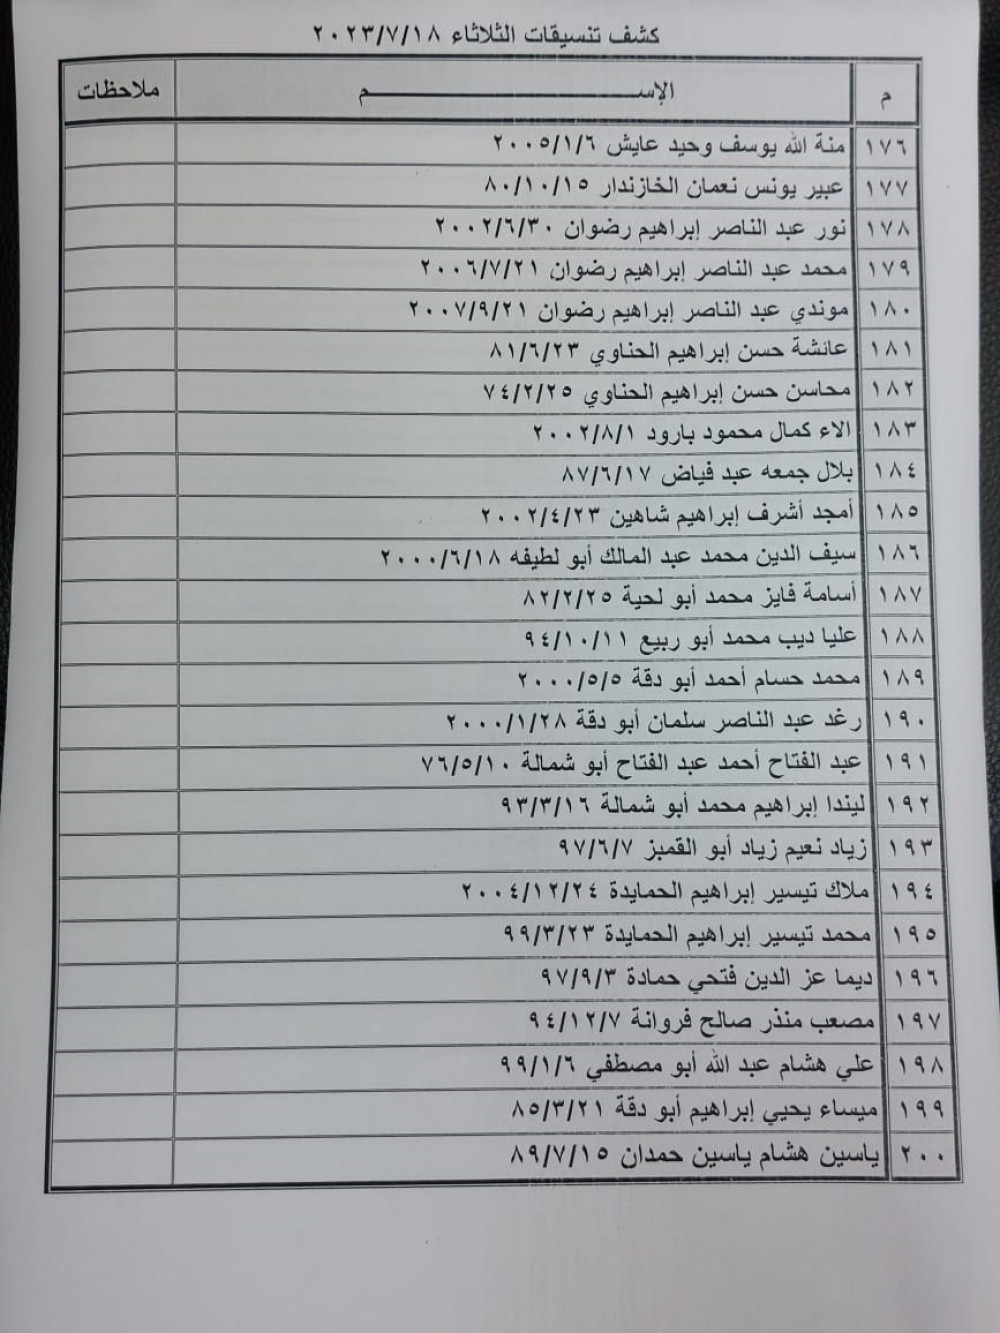 كشف تنسيقات الثلاثاء ٢٠٢٣/٧/١٨
م الإســـــم ملاحظات
١٧٦ منة الله يوسف وحيد عايش ٢٠٠٥/١/٦
١٧٧ عبير يونس نعمان الخازندار ٨٠/١٠/١٥
١٧٨ نور عبد الناصر إبراهيم رضوان ٢٠٠٢/٦/٣٠
١٧٩ محمد عبد الناصر إبراهيم رضوان ٢٠٠٦/٧/٢١
١٨٠ موندي عبد الناصر إبراهيم رضوان ٢٠٠٧/٩/٢١
١٨١ عائشة حسن إبراهيم الحناوي ٨١/٦/٢٣
١٨٢ محاسن حسن إبراهيم الحناوي ٧٤/٢/٢٥
١٨٣ الاء كمال محمود بارود ٢٠٠٢/٨/١
١٨٤ بلال جمعه عبد فياض ٨٧/٦/١٧
١٨٥ أمجد أشرف إبراهيم شاهين ٢٠٠٢/٤/٢٣
١٨٦ سيف الدين محمد عبد المالك أبو لطيفه ٢٠٠٠/٦/١٨
١٨٧ أسامة فايز محمد أبو لحية ٨٢/٢/٢٥
١٨٨ عليا ديب محمد أبو ربيع ٩٤/١٠/١١
١٨٩ محمد حسام أحمد أبو دقة ٢٠٠٠/٥/٥
١٩٠ رغد عبد الناصر سلمان أبو دقة ٢٠٠٠/١/٢٨
١٩١ عبد الفتاح أحمد عبد الفتاح أبو شمالة ٧٦/٥/١٠
١٩٢ ليندا إبراهيم محمد أبو شمالة ٩٣/٣/١٦
١٩٣ زياد نعيم زياد أبو القمبز ٩٧/٦/٧
١٩٤ ملاك تيسير إبراهيم الحمايدة ٢٠٠٤/١٢/٢٤
١٩٥ محمد تيسير إبراهيم الحمايدة ٩٩/٣/٢٣
١٩٦ ديما عز الدين فتحي حمادة ٩٧/٩/٣
١٩٧ مصعب منذر صالح فروانة ٩٤/١٢/٧
١٩٨ علي هشام عبد الله أبو مصطفي ٩٩/١/٦
١٩٩ ميساء يحيي إبراهيم أبو دقة ٨٥/٣/٢١
٢٠٠ ياسين هشام ياسين حمدان ٨٩/٧/١٥